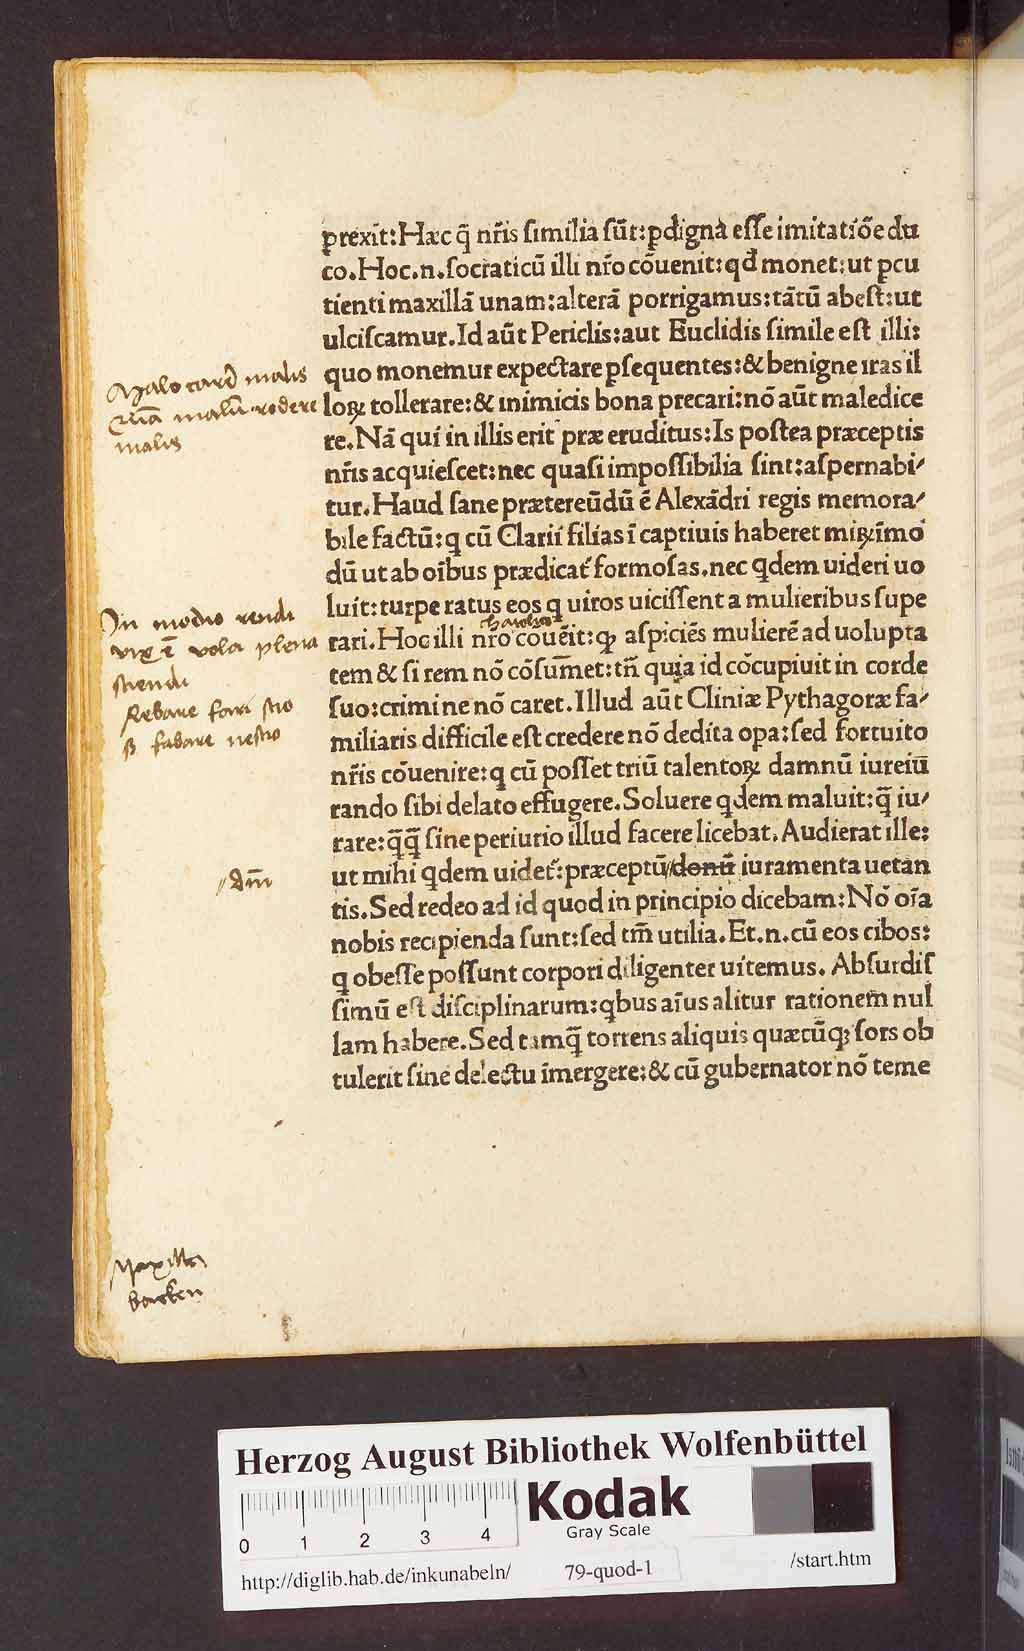 ꝑrexit: Hæc q̃ nr̃is ſimilia ſũt: ꝑdigna eſſe imitatiõe du
co. Hoc .n. ſocraticũ illi nr̃o cõuenit: qđ monet: ut ꝑcu
tienti maxillã unam: alterã porrigamus: tãtũ abeſt: ut
ulciſcamur. Id aũt Periclis: aut Euclidis ſimile eſt illi:
quo monemur expectare ꝑſequentes: & benigne iras il
loꝝ tollerare: & inimicis bona precari: nõ aũt maledice
re. Nã qui in illis erit præ eruditus: Is poſtea præceptis
nr̃is acquieſcet: nec quaſi impoſſibilia ſint: aſpernabi⸗
tur. Haud ſane prætereũdũ ẽ Alexãdri regis memora⸗
bile factũ: q cũ Clarii filias ĩ captiuis haberet miꝝ ĩmo
dũ ut ab oĩbus prædicat̃ formoſas. nec qdem uideri uo
luit: turpe ratus eos q uiros uiciſſent a mulieribus ſupe
rari. Hoc illi nr̃o couẽit: ꝙ aſpiciẽs mulierẽ ad uolupta
tem & ſi rem nõ cõſum̃et: tñ quia id cõcupiuit in corde
ſuo: crimine nõ caret. Illud aũt Cliniæ Pythagoræ fa⸗
miliaris difficile eſt credere nõ dedita oꝑa: ſed fortuito
nr̃is cõuenire: q cũ poſſet triũ talentoꝝ damnũ iureiũ
rando ſibi delato effugere. Soluere qdem maluit: q̃ iu⸗
rare: q̃q̃ ſine periurio illud facere licebat. Audierat ille:
ut mihi qdem uidet̃: præceptũ // donũ iuramenta uetan
tis. Sed redeo ad id quod in principio dicebam: Nõ oĩa
nobis recipienda ſunt: ſed tm̃ utilia. Et .n. cũ eos cibos:
q obeſſe poſſunt corpori diligenter uitemus. Abſurdiſ
ſimũ eſt diſciplinarum: qbus aĩus alitur rationem nul
lam habere. Sed tamq̃ torrens aliquis quæcũqꝫ ſors ob
tulerit ſine delectu ĩmergere: & cũ gubernator nõ teme
Malo malis
malũ rodere
malis
In modio
ẽ vola plena
// dm̃
Maxilla
backen
Herzog August Bibliothek Wolfenbüttel
0 1 2 3 4
Kodak
Gray Scale
http://diglib.hab.de/inkunabeln/ 79-quod-1 /start.htm